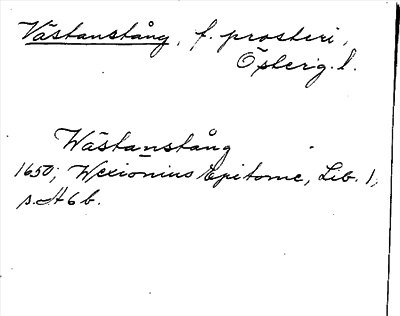 Västanstång, f. prosteri,
Österg. l.
Wästanstång
1650; Wexionius Epitome, Lib. 1,
s. A6b.